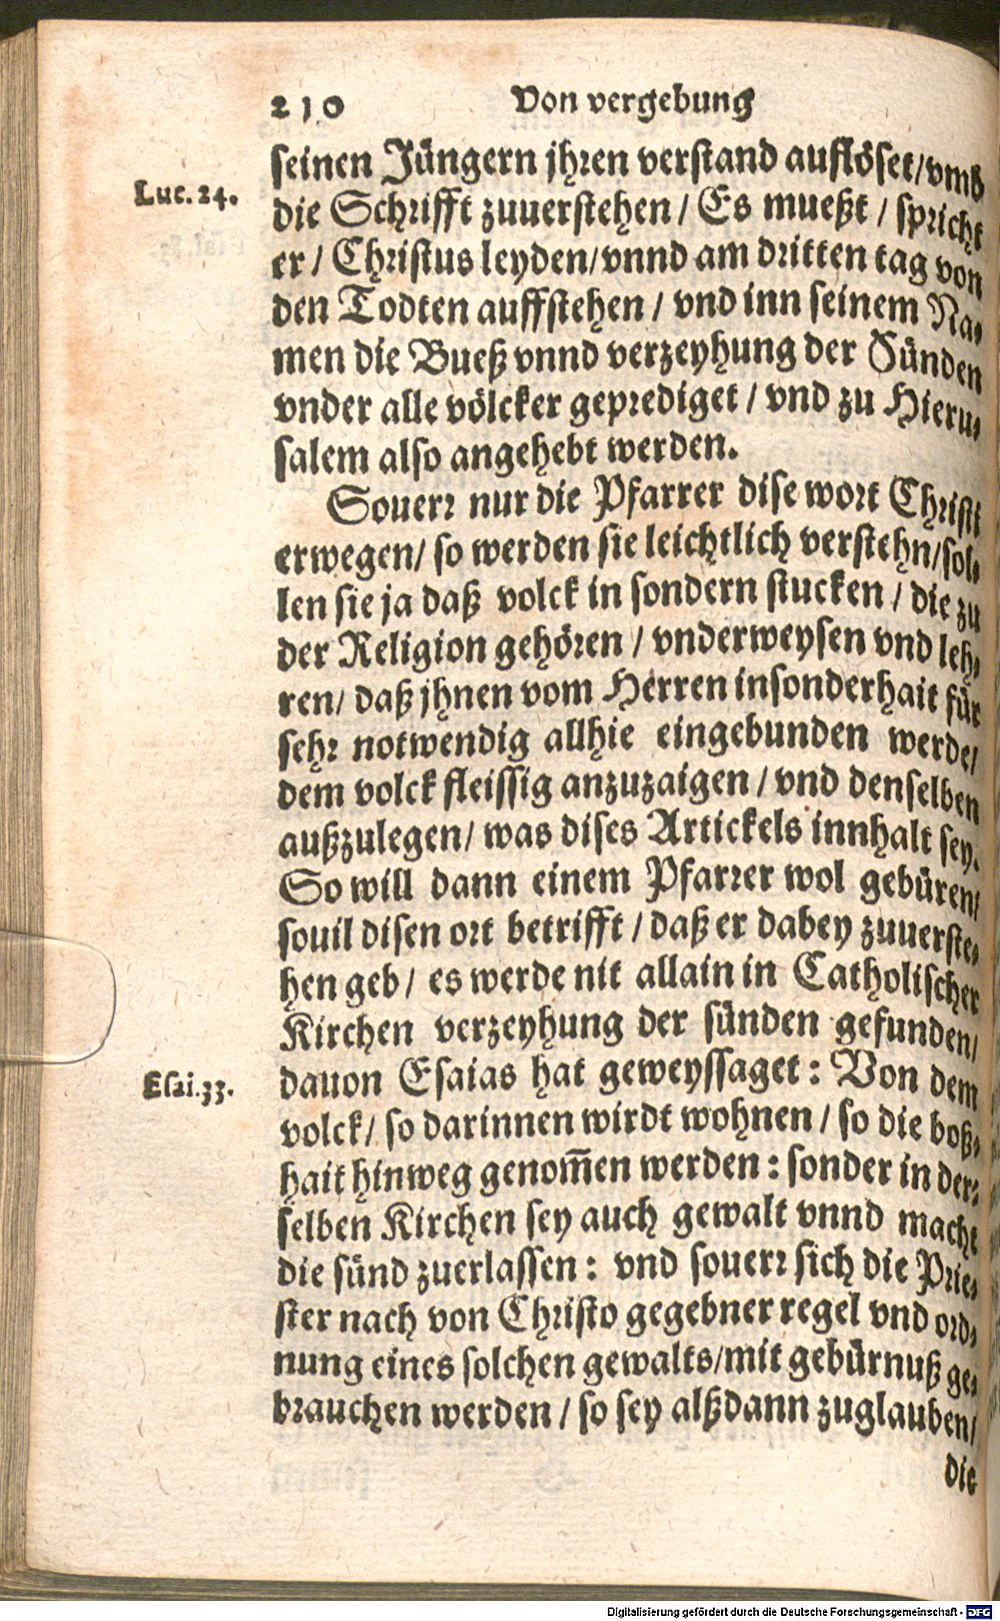 210 Von vergebung
seinen Jüngern jhren verstand auflöset/vmb
Luc. 24.
die Schrifft zuuerstehen / Es mueßt / spricht
er / Christus leyden/vnnd am dritten tag von
den Todten auffstehen / vnd inn seinem Na-
men die Bueß vnnd verzeyhung der Sünden
vnder alle völcker geprediget / vnd zu Hieru-
salem also angehebt werden.
Souerr nur die Pfarrer dise wort Christi
erwegen/ so werden sie leichtlich verstehn/sol-
len sie ja daß volck in sondern stucken / die zu
der Religion gehören / vnderweysen vnd leh-
ren/ daß jhnen vom Herren insonderhait für
sehr notwendig allhie eingebunden werde/
dem volck fleissig anzuzaigen / vnd denselben
außzulegen/ was dises Artickels innhalt sey.
So will dann einem Pfarrer wol gebüren/
souil disen ort betrifft / daß er dabey zuuerste-
hen geb / es werde nit allain in Catholischer
Kirchen verzeyhung der sünden gefunden/
Esai. 33.
dauon Esaias hat geweyssaget : Von dem
volck/ so darinnen wirdt wohnen / so die boß-
hait hinweg genom̃en werden : sonder in der-
selben Kirchen sey auch gewalt vnnd macht
die sünd zuerlassen : vnd souerr sich die Prie-
ster nach von Christo gegebner regel vnd ord-
nung eines solchen gewalts/mit gebürnuß ge-
brauchen werden / so sey alßdann zuglauben/
die
Digitalisierung gefördert durch die Deutsche Forschungsgemeinschaft - DFG